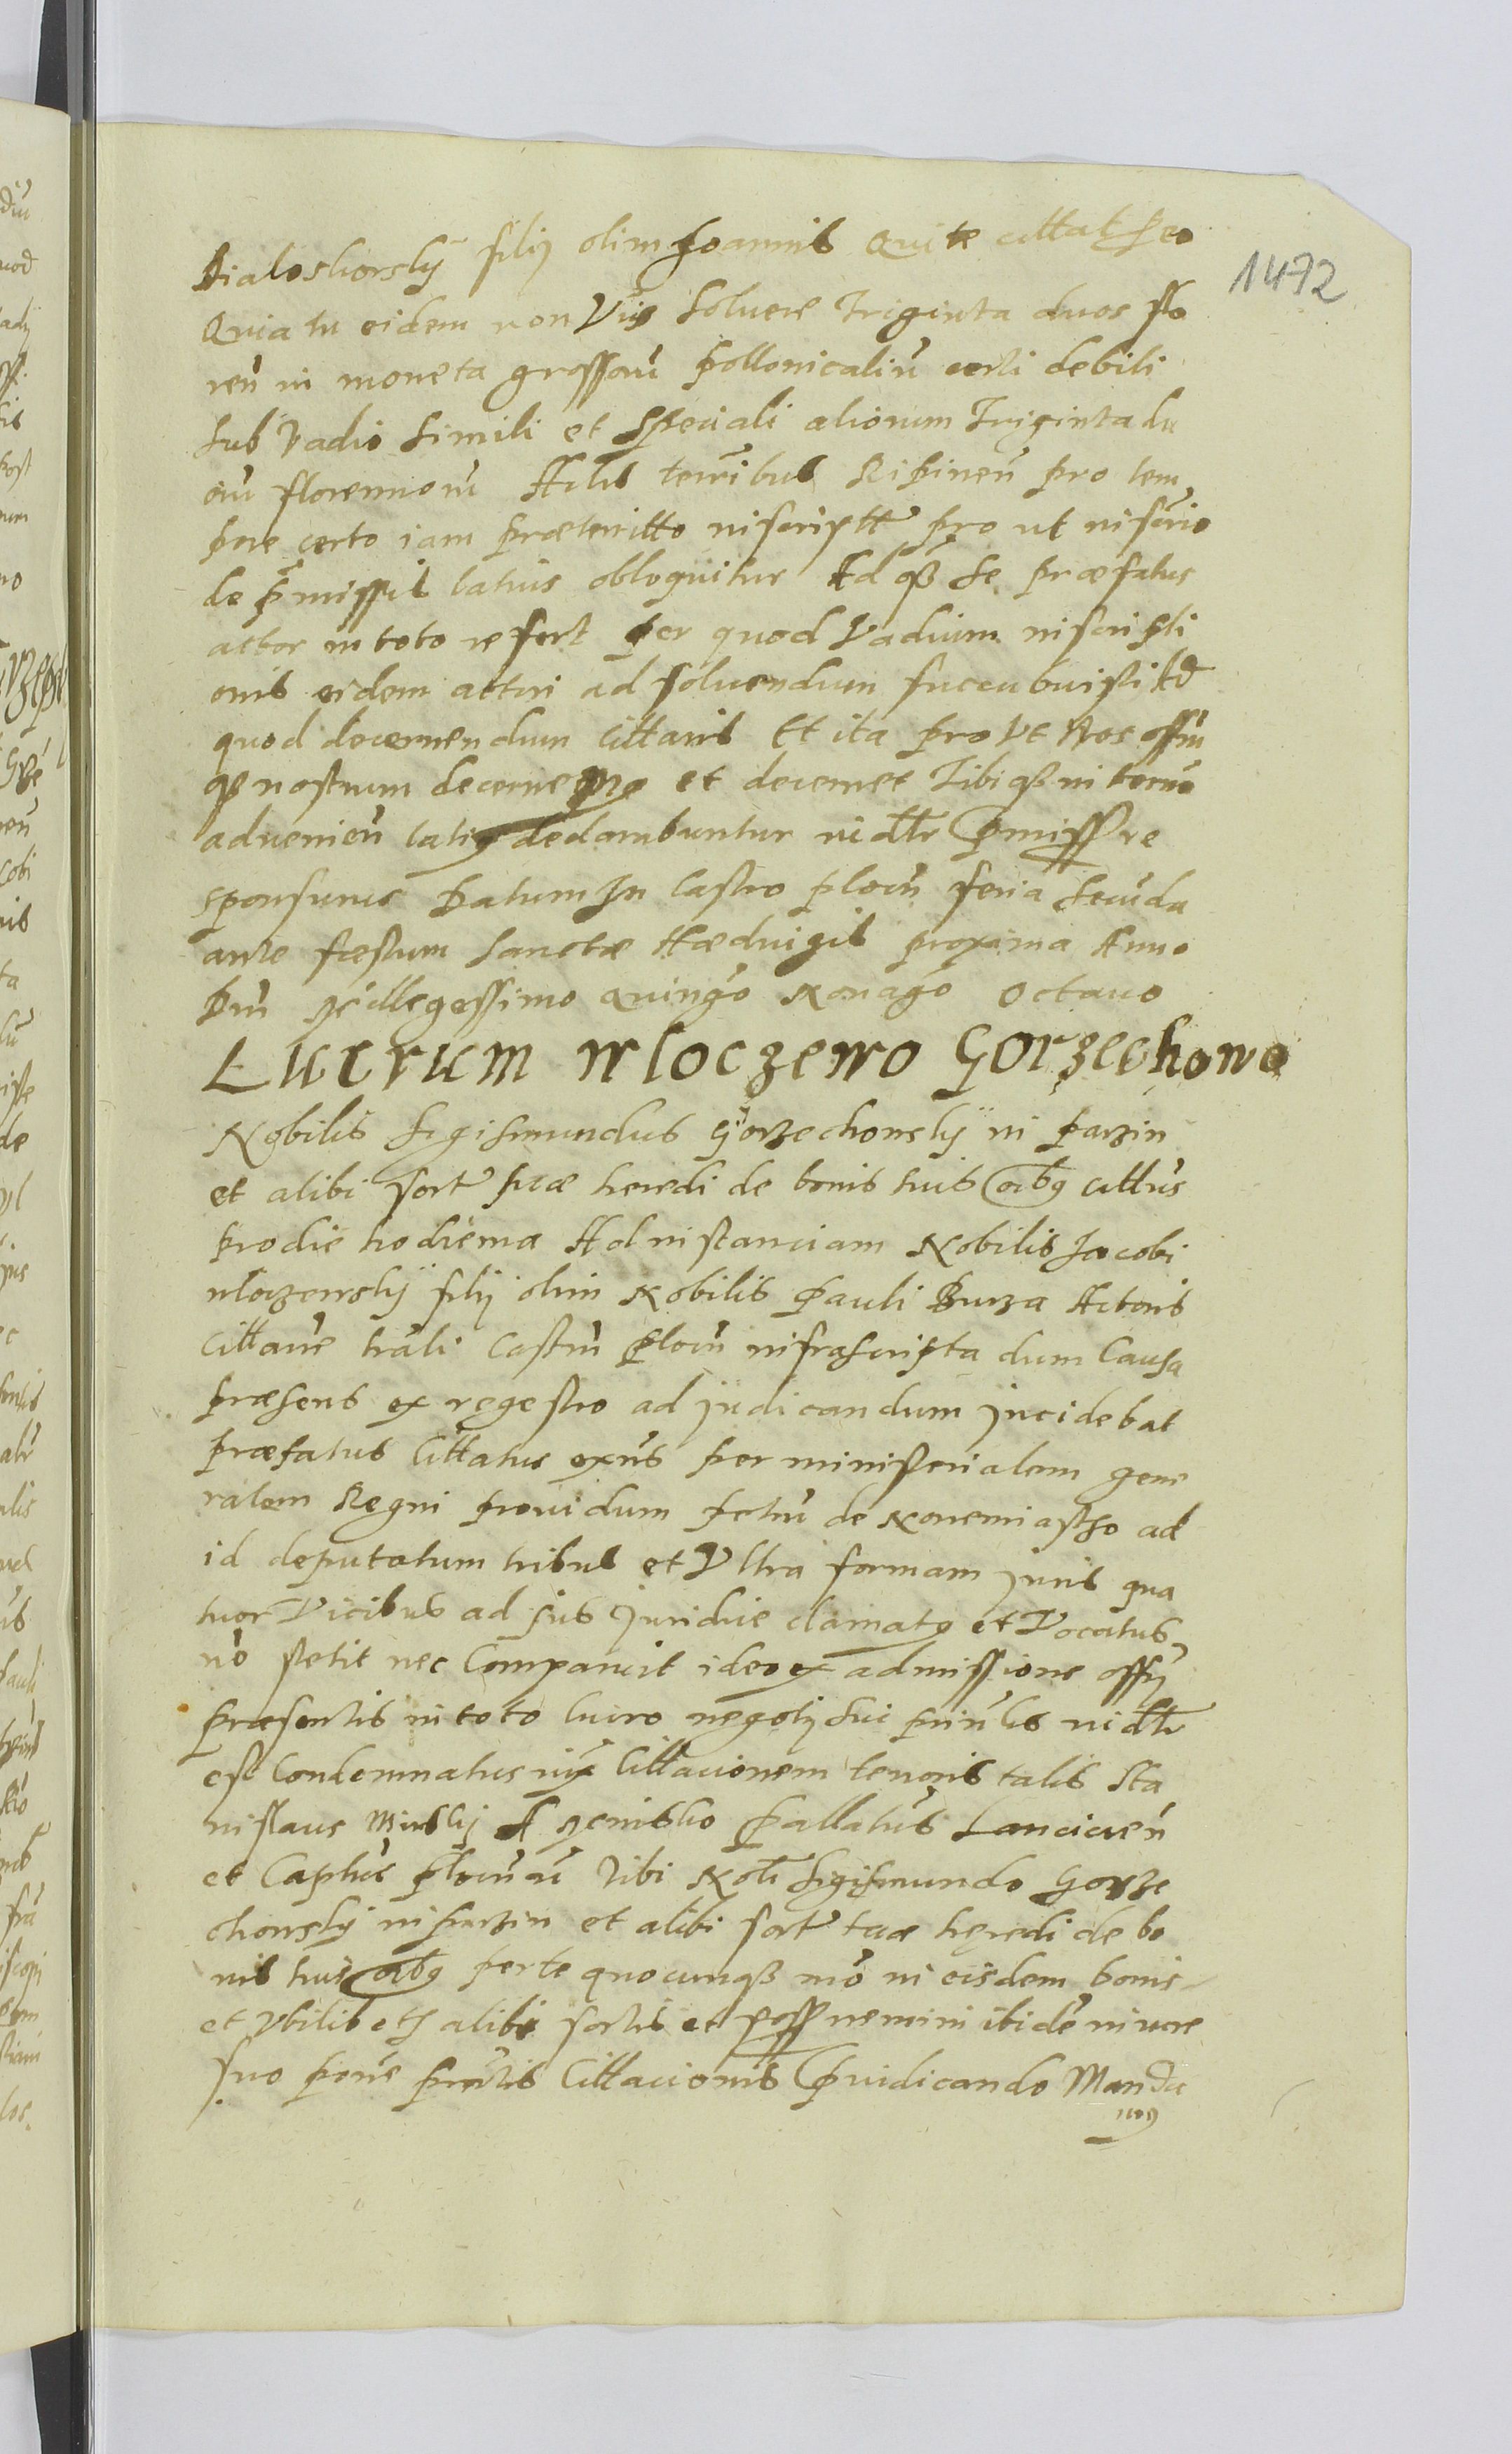 1472
Bialoskorsky filÿ olim Joannis Qui te cittat Pro eo
Quia tu eidem non Vis soluere Triginta duos flo
ren in moneta grossoru pollonicaliu certi debiti
sub Vadio simili et speciali aliorum Triginta du
oru florennoru Actis terribus Ripinen pro tem
pore certo iam præteritto inscriptt pro ut inscrio
de pmissis latius obloquitur Ad qß se præfatus
actor in toto refert per quod Vadium inscripti
onis eidem actori ad soluendum succubuisti Ad
quod decernendum Cittaris Et ita pro Vt Nos offiu
qz nostrum decernemus et decernet Tibi qß in termo
aduenien latius declarabuntur iudtr pmiss re
sponsurus Datum In Castro plocen feria secuda
ante fæstum sanctæ Hæduigis proxima Anno
Dni Millegessimo Quingo Nonago Octauo
Lucrum Wloczewo Gorzechowo
Nobilis Sigismundus Gorzechowsky in parzin
et alibi sort suæ heredi de bonis huis oibus cittus
pro die hodierna Ad instanciam Nobilis Jacobi
wloczewsky filÿ olim Nobilis Pauli Burza Actoris
Cittaue trali Castrn Plocn infrascripta dum Causa
præsens ex regestro ad judicandum jncidebat
præfatus Cittatus exns per ministerialem gene
ralem Regni prouidum Petru de Nowemiastho ad
id deputatum tribus et Vltra formam juris qua
tuor Vicibus ad jus juridice clamatus et Vocatus
no stetit nec Comparuit ideo ex admissione offÿ
præsentis in toto lucro negotÿ sui prinlis iudtr
est Condemnatus iux Cittacionem tenoris talis Sta
nislaus Minsky A Mensko Pallatus Lancicien
et Captus Plocnn Tibi Nobl Sigismundo Gorze
chowsky in parzin et alibi sort tuæ heredi de bo
nis huis oibus per te quocunqß mo in eisdem bonis
et Vbilibeth alibi sortis et poss nemini ibide in iure
suo pone pntis Cittacionis Piudicando Manda
mus